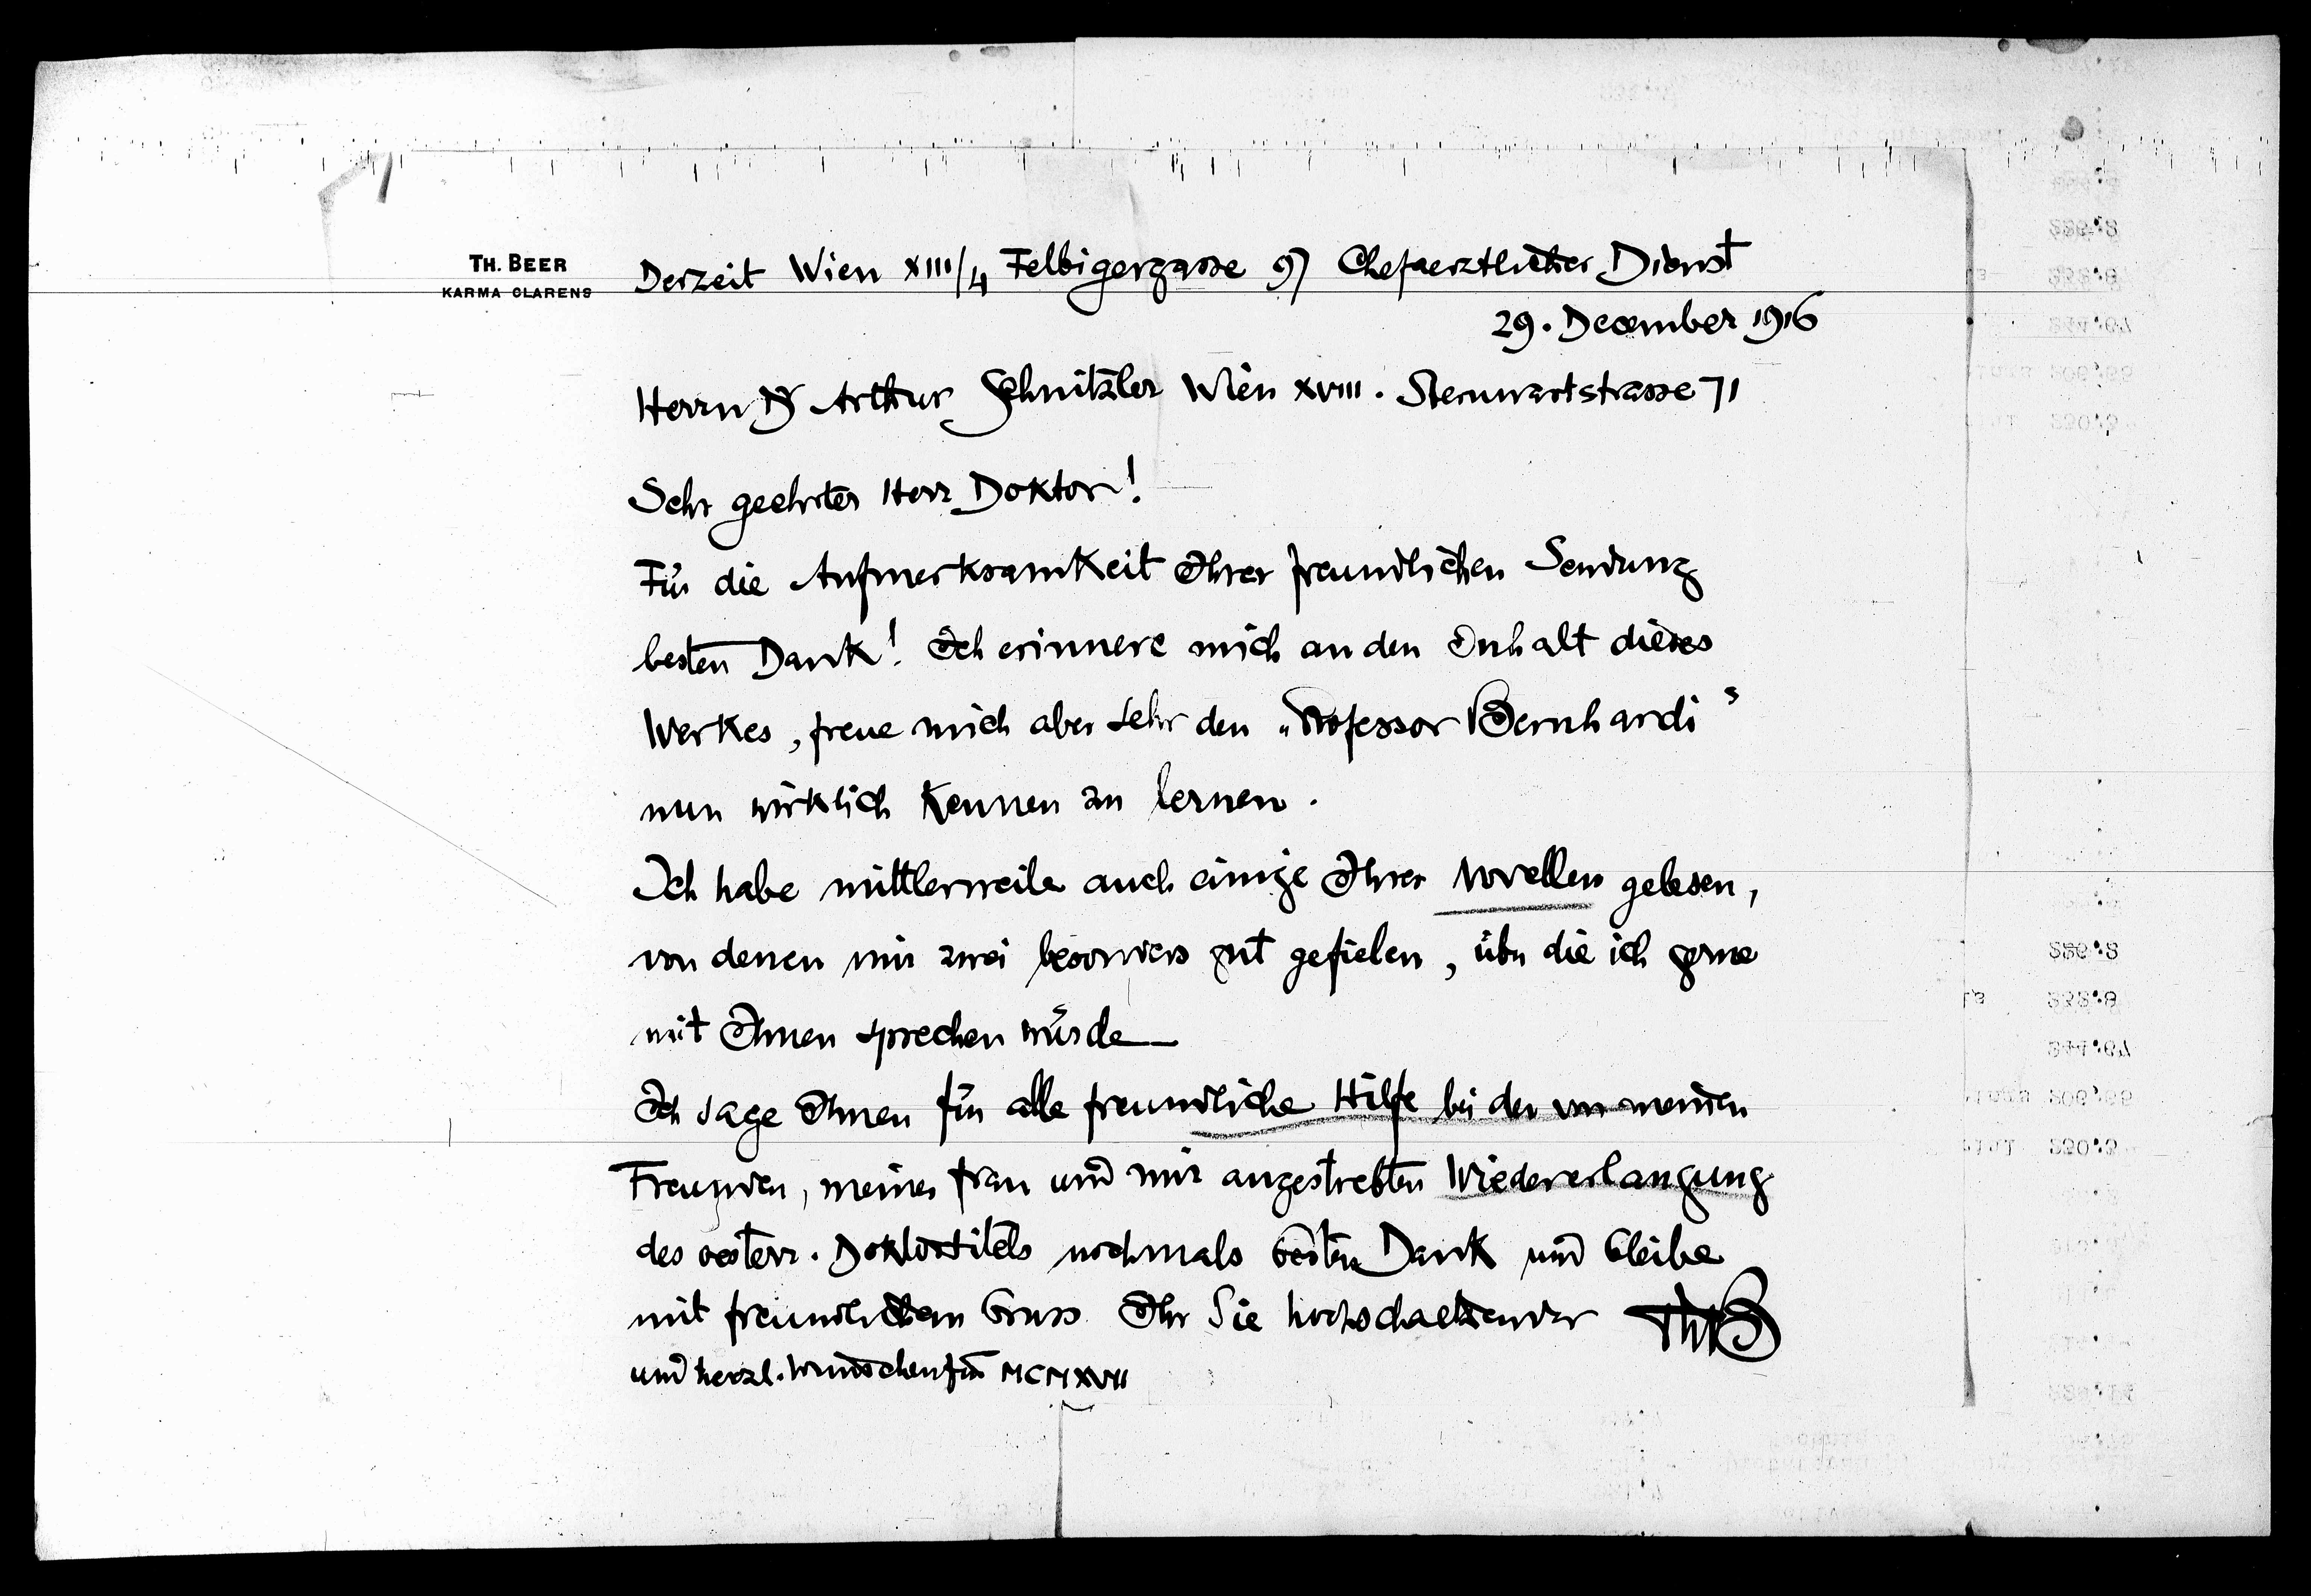 TH. BEER
KARMA CLARENS
Derzeit Wien XIII/4 Felbigergasse 97 Chefaerztlicher Dienst
29. December 1916
Herrn Dr Arthur Schnitzler Wien XVIII. Sternwartstrasse 71
Sehr geehrter Herr Doktor!
Für die Aufmerksamkeit Ihrer freundlichen Sendung
besten Dank! Ich erinnere mich an den Inhalt dieses
Werkes, freue mich aber sehr den „Professor Bernhardi“
nun wirklich kennen zu lernen.
Ich habe mittlerweile auch einige Ihrer Novellen gelesen,
von denen mir zwei besonders gut gefielen, über die ich gerne
mit Ihnen sprechen würde
Ich sage Ihnen für alle freundliche Hilfe bei der von meinen
Freunden, meiner Frau und mir angestrebten Wiedererlangung
des oesterr. Doktortitels nochmals besten Dank und bleibe
mit freundlichem Gruss Ihr Sie hochschaetzender ThB
und herzl. Wünschen für MCMXVII